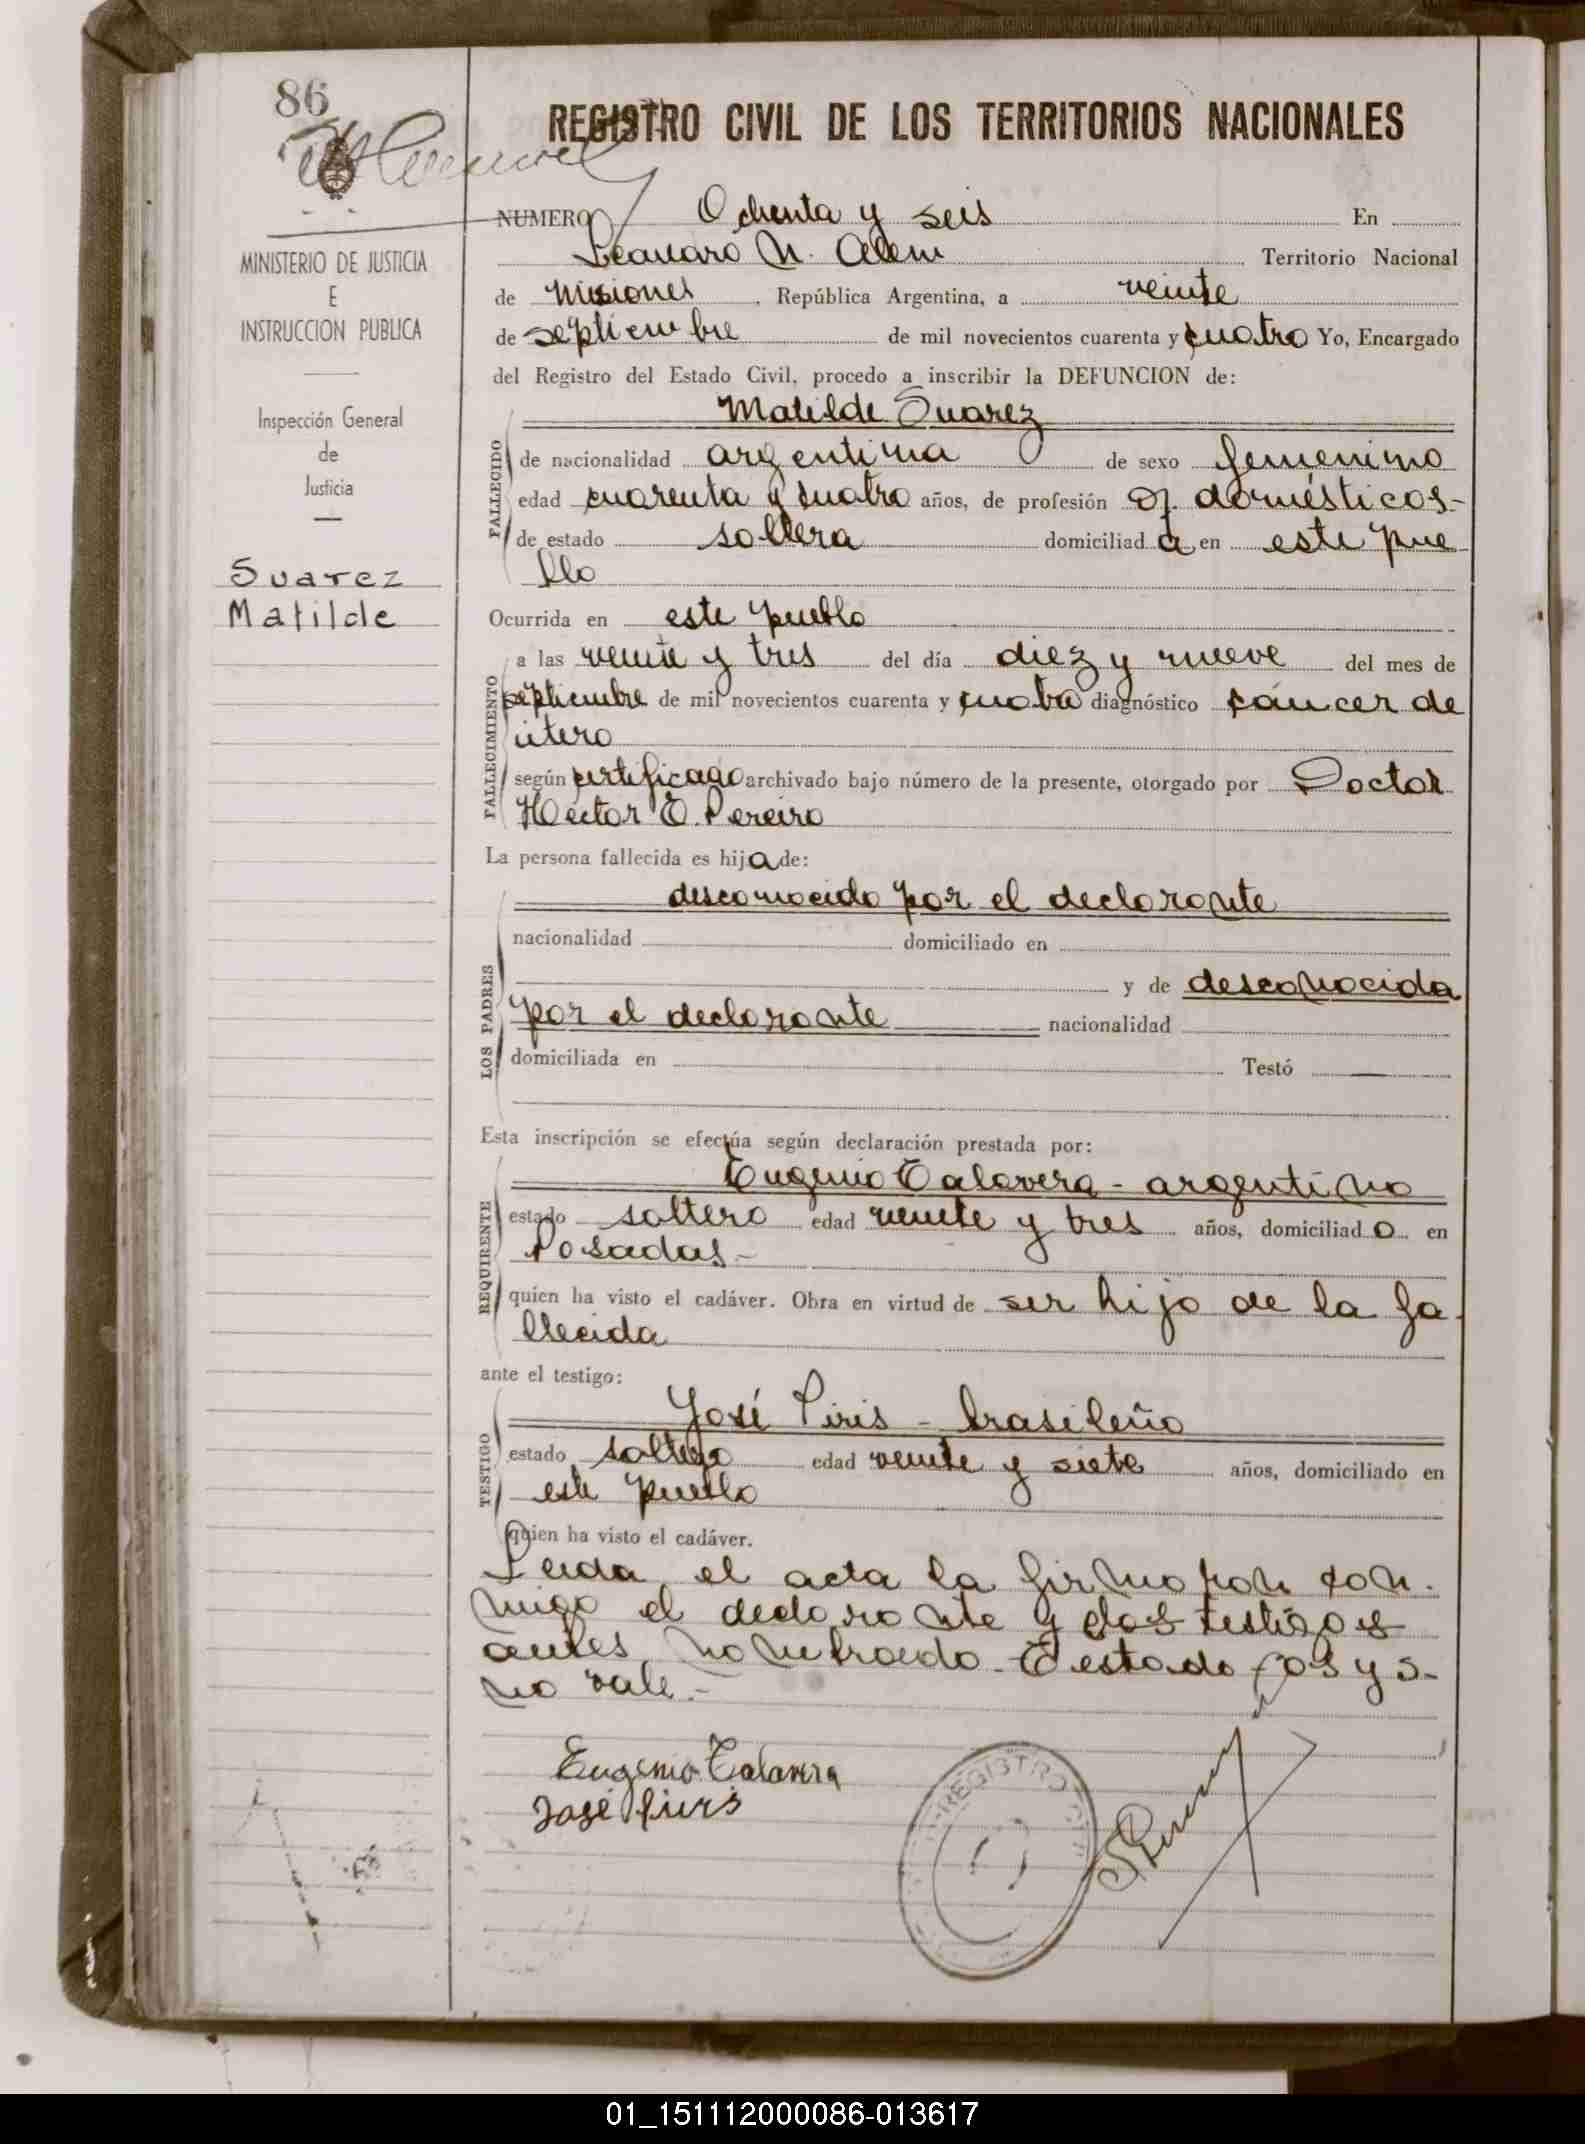 86
REGISTRO CIVIL DE LOS TERRITORIOS NACIONALES
NUMERO Ochenta y seis En
Leandro N. Alem Territorio Nacional
de Misiones, República Argentina, a veinte
de septiembre de mil novecientos cuarenta y cuatro Yo, Encargado
del Registro del Estado Civil, procedo a inscribir la DEFUNCION de:
MINISTERIO DE JUSTICIA
E
INSTRUCCION PUBLICA
Inspección General
de
Justicia
Suarez
Matilde
FALLECIDO
Matilde Suarez
de nacionalidad argentina de sexo femenino
edad cuarenta y cuatro años, de profesión q. domésticos.-
de estado soltera domiciliada en este pue
blo
Ocurrida en este pueblo
FALLECIMIENTO
a las veinte y tres del día diez y nueve del mes de
septiembre de mil novecientos cuarenta y cuatro diagnóstico cáncer de
útero
según certificado archivado bajo número de la presente, otorgado por Doctor
Héctor E. Pereira
La persona fallecida es hija de:
LOS PADRES
desconocido por el declarante
nacionalidad domiciliado en
y de desconocida
por el declarante nacionalidad
domiciliada en Testó —
Esta inscripción se efectúa según declaración prestada por:
REQUIRENTE
Eugenio Talavera - argentino
estado soltero edad veinte y tres años, domiciliado en
Posadas.-
quien ha visto el cadáver. Obra en virtud de ser hijo de la fa-
llecida
ante el testigo:
TESTIGO
José Piris - brasileño
estado soltero edad veinte y siete años, domiciliado en
este pueblo
quien ha visto el cadáver.
Leida el acta la firmaron con-
migo el declarante y los testigos
antes nombrado. Testado os y s-
no vale.-
Eugenio Talavera
José Piris
REGISTRO
01_151112000086-013617